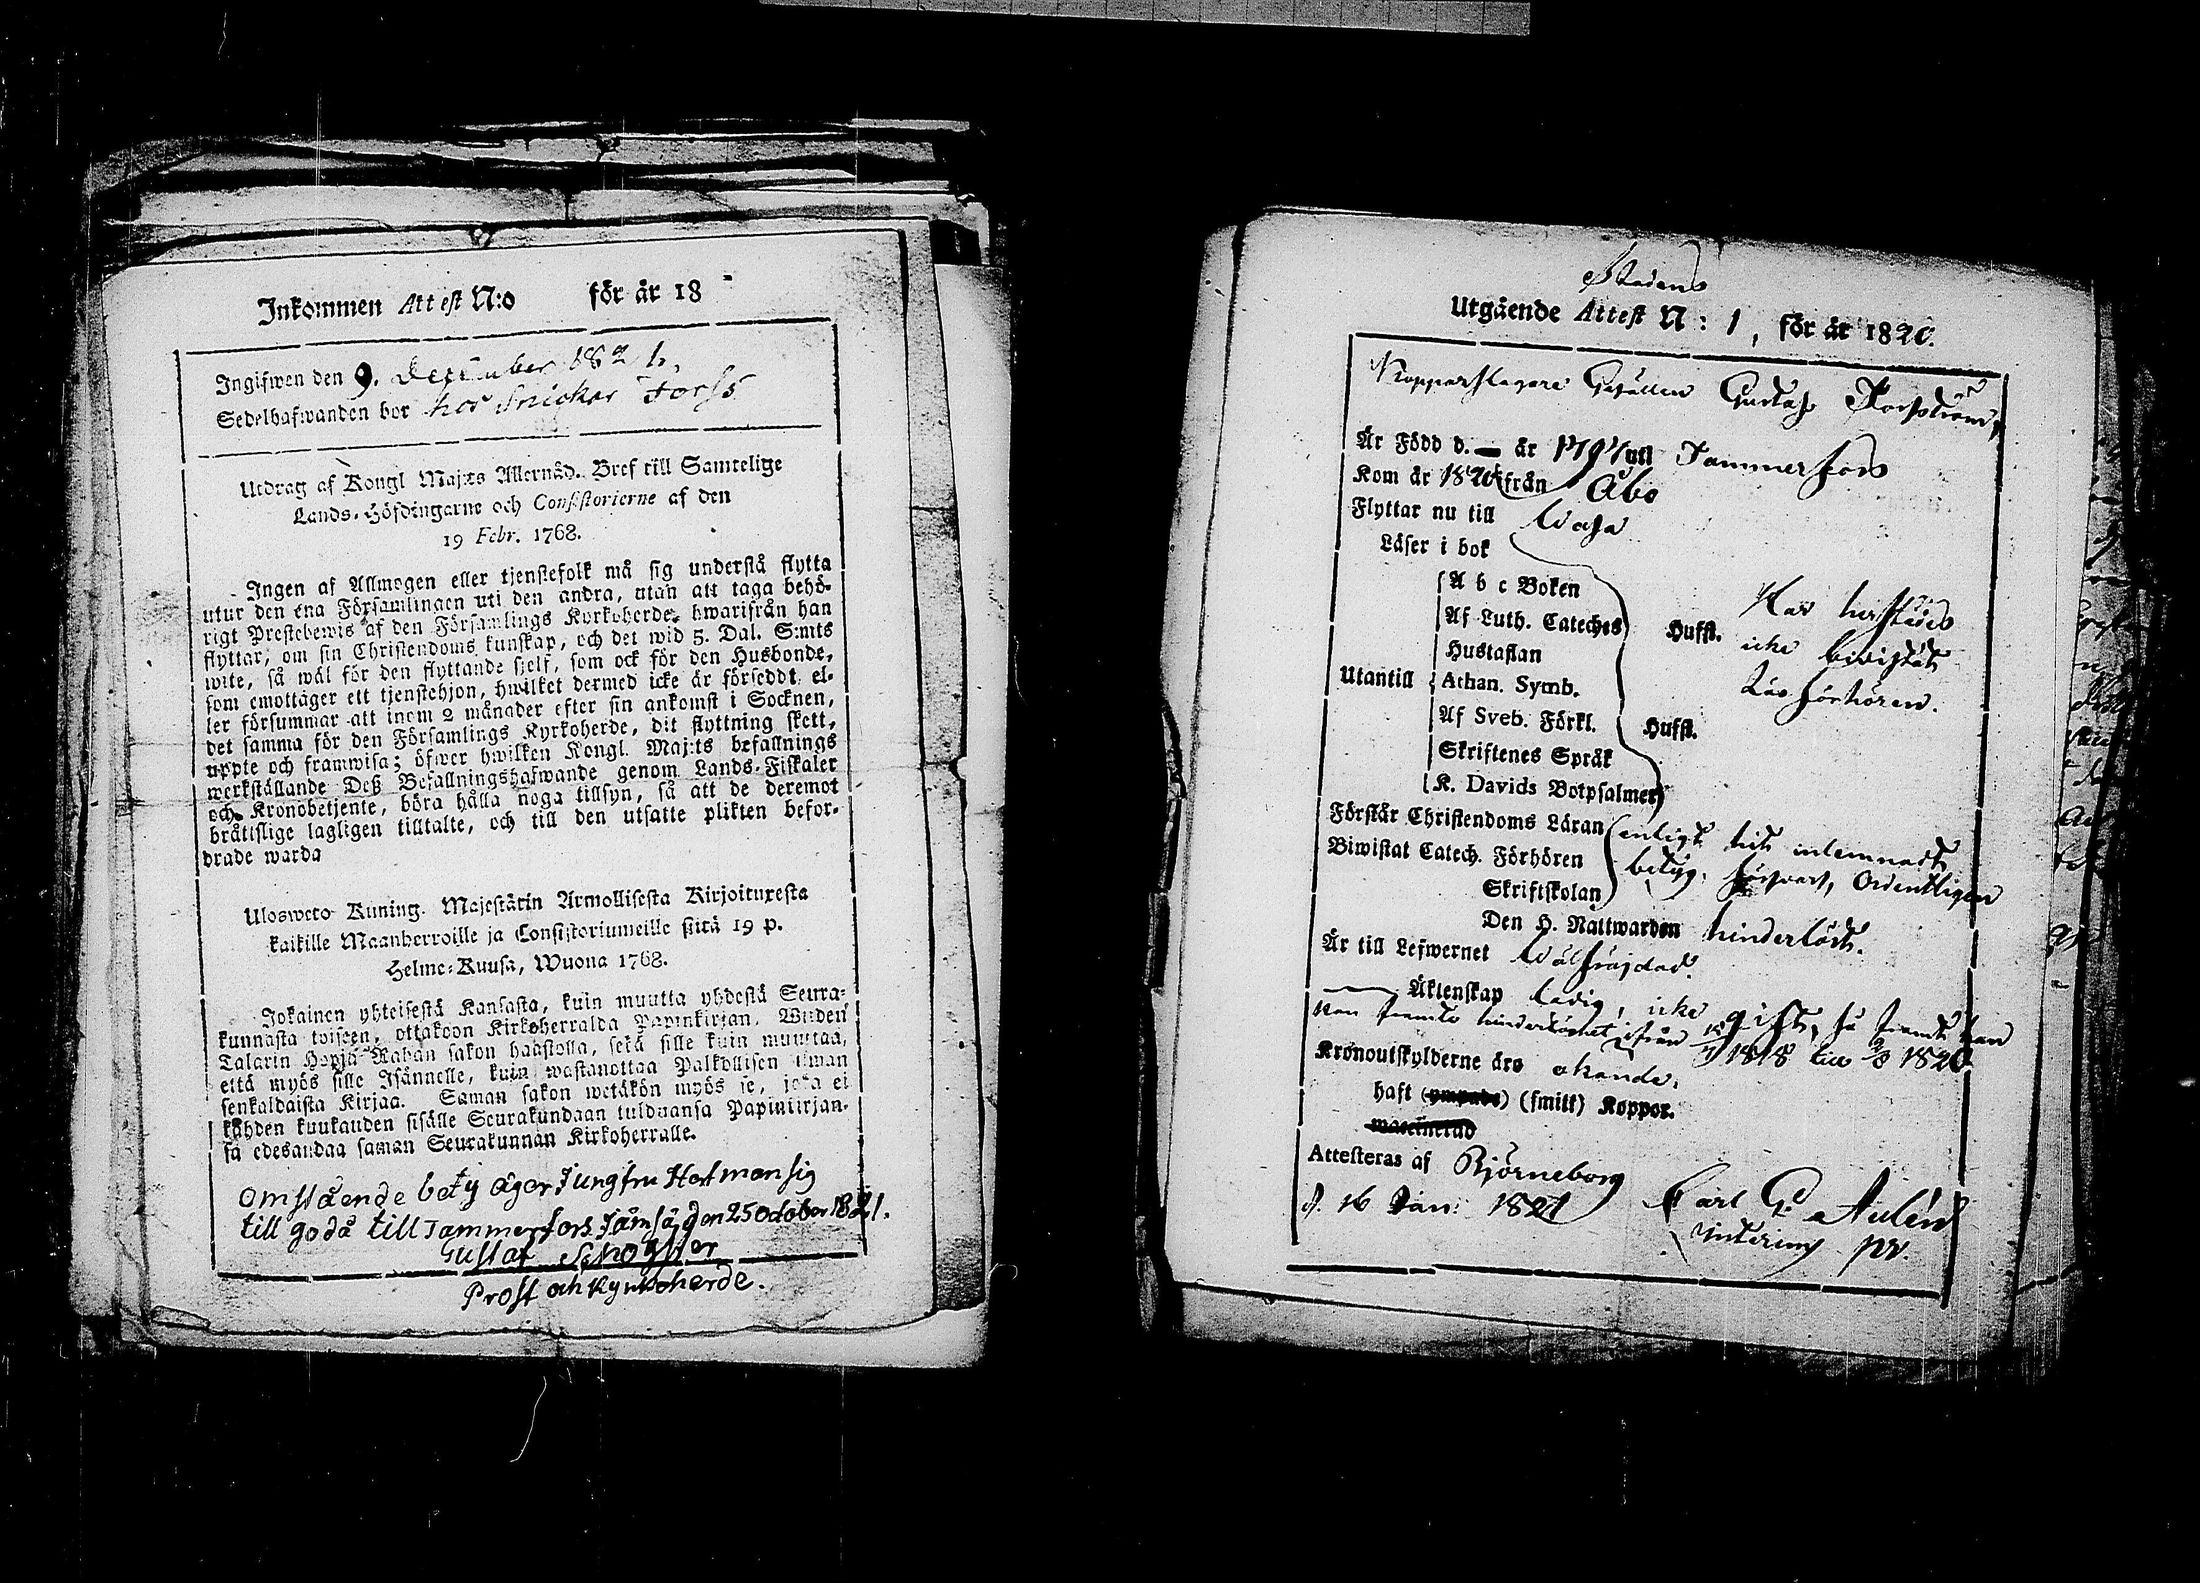 Inkommen Attest N:o för år 18
Ingifwen den 9. December 1821.
Sedelhafwanden bor hos Snickar Forss
Utdrag af Kongl Maj:ts Allernåd. Bref till Samtelige
Lands-Höfdingarne och Consistorierne af den
19 Febr. 1768.
Ingen af Allmogen eller tjenstefolk må sig understå flytta
utur den ena Församlingen uti den andra, utan att taga behö-
rigt Prestebewis af den Församlings Kyrkoherde, hwarifrån han
flyttar, om sin Christendoms kunskap, och det wid 5. Dal. S:mts
wite, så wäl för den flyttande sjelf, som ock för den Husbonde,
som emottager ett tjenstehjon, hwilket dermed icke är försedt, el-
ler försummar att inom 2 månader efter sin ankomst i Socknen,
det samma för den Församlings Kyrkoherde, dit flyttning skett,
uppte och framwisa; öfwer hwilken Kongl. Maj:ts befallnings
werkställande Deß Befallningshafwande genom Lands-Fiskaler
och Kronobetjente, böra hålla noga tillsyn, så att de deremot
bråttslige lagligen tilltalte, och till den utsatte plikten befor-
drade warda
Ulosweto Kuning. Majestätin Armollisesta Kirjoituxesta
kaikille Maanherroille ja Consistoriumeille siitä 19 p.
Helme-Kuusa, Wuona 1768.
Jokainen yhteisestä Kansasta, kuin muutta yhdestä Seura-
kunnasta toiseen, ottakoon Kirkoherralda Papinkirjan, Wiiden
Talarin Hopja-Rahan sakon haastolla, sekä sille kuin muuttaa,
että myös sille Isännelle, kuin wastanottaa Palkollisen ilman
senkaldaista Kirjaa. Saman sakon wetäkön myös se, joka ei
kahden kuukauden sisälle Seurakundaan tulduansa Papinkirjan-
sa edesandaa saman Seurakunnan Kirkoherralle.
Omstående bety äger Jungfru Hartman sig
till godå till Tammerfors Jämsä den 25 October 1821.
Gustaf
Prost och Kyrkoherde.
Stadens
Utgående Attest N: 1, för år 1820.
Kopparslagare Gesällen Gustaf Forsström,
Är Född d. — år 1797 uti Tammerfors
Kom år 1820 från Åbo
Flyttar nu till Wasa
Läser i bok
A b c Boken
Af Luth. Cateches Hufst. Har härstädes
Hustaflan icke biwistat
Utantill Athan. Symb. Läsförhören.
Af Sveb. Förkl. Hufst.
Skriftenes Språk
K. Davids Botpsalmer
Förstår Christendoms Läran enligt hit inlemnadt
Biwistat Catech. Förhören betyg, förswart, Ordentligen
Skriftskolan
Den H. Nattwarden hinderlöst.
Är till Lefwernet Wälfräjdad.
Äktenskap ledig, icke gift, så framt han
kan framte hinderlöshet ifrån 1818 till 1820
Kronoutskylderne äro okände.
haft (ympade) (smitt) Koppor.
waccinerad
Attesteras af Björneborg
d. 16 Jan: 1821 Carl G. Aulén
Interims pr.